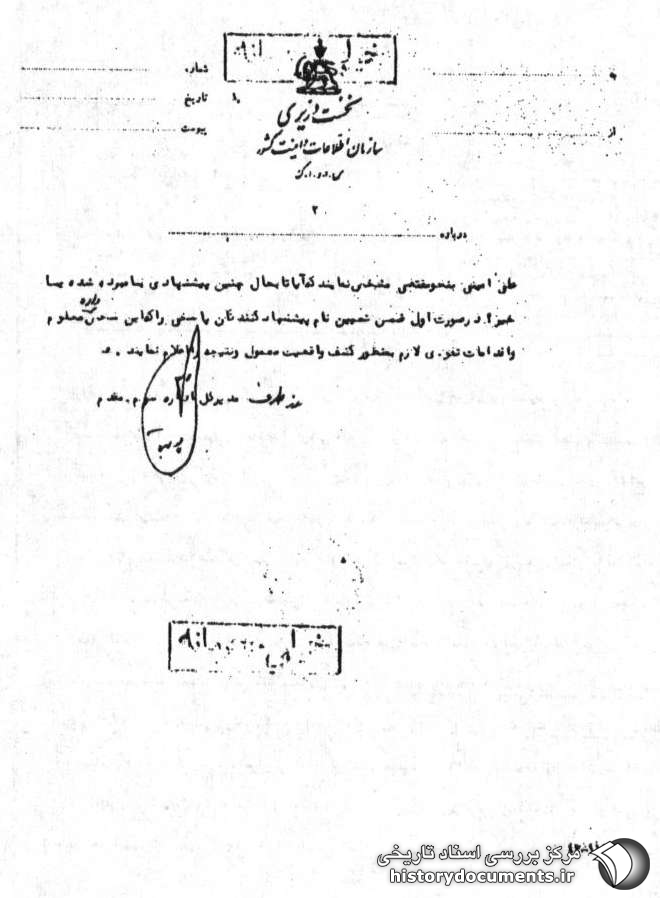 خیلی محرمانه
شماره
تاریخ
پیوست
به
از
نخست وزیری
سازمان اطلاعات و امنیت کشور
س.ا.و.ا.ک
۲
درباره
علی امینی بنحو مقتضی مشخص نمایند که آیا تا بحال چنین پیشنهادی بنامبرده شده یا
خیر؟ در صورت اول ضمن تعیین نام پیشنهاد کنندگان پاسخی را که این شخص داده معلوم
و اقدامات لازم بمنظور کشف واقعیت معمول و نتیجه را اعلام نمایند.
از طرف مدیر کل اداره سوم. مقدم
خیلی محرمانه
مرکز بررسی اسناد تاریخی
historydocuments.ir